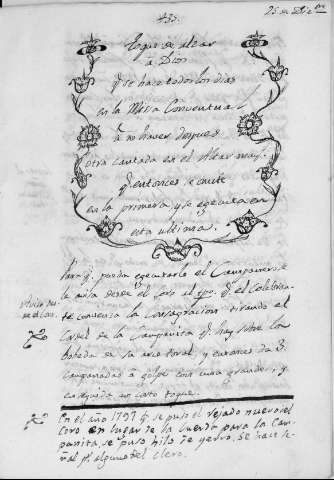 435.
25 de Dic.bre
Toque de alzar
a Dios
q.e se hace todos los dias
en la Misa Conventual
a no haver despues
otra cantada en el Altar may.r
q.e entonces se omite
en la primera, y se egecuta en
esta ultima.
Para q.e pueda egecutarle el Campanero se
le avisa desde el Coro al tpo. q.e el Celebran-
te comienza la Consagracion tirando el
Cordel de la Campanita q.e hay sobre la
boveda de su arco toral, y entonces da 3.
Campanadas a golpe con una grande, y
en seguida un corto toque.
En el año 1797 q.e se puso el rejado nuevo del
Coro en lugar de la cuerda para la Cam-
panita, se puso hilo de yerro, se hace se-
ñal p.r alguno del clero.